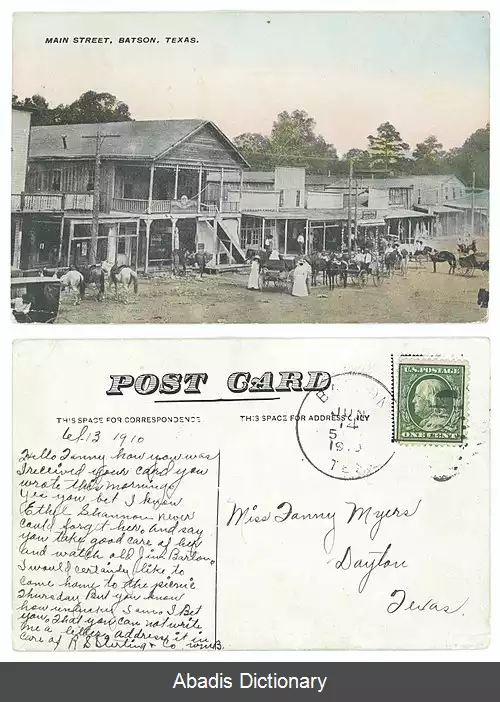 MAIN STREET, BATSON, TEXAS.
POST CARD
THIS SPACE FOR CORRESPONDENCE
THIS SPACE FOR ADDRESS ONLY
13 1910
Hello Fanny how you was
I received your card you
wrote this morning
Yes you bet I know
Ethel Shannon never
could forget her, and say
you take good care of her
and watch old Jim Barton,
I would certainly like to
come home to the picnic
Thursday But you know
how I am. I Bet
you that you can not write
me a letter, address it in
care of R S Sterling & Co
JUN
14
5
TEX
U.S. POSTAGE
ONE CENT
Miss Fanny Myers
Dayton
Texas.
Abadis Dictionary